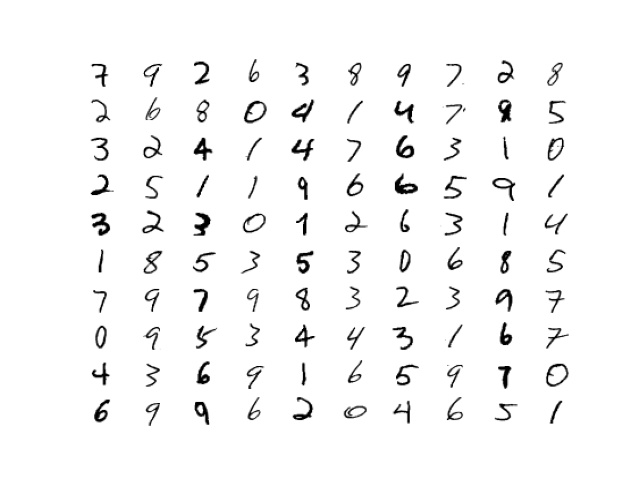 7 9 2 6 3 8 9 7 2 8
2 6 8 0 4 1 4 7 8 5
3 2 4 1 4 7 6 3 1 0
2 5 1 1 9 6 6 5 9 1
3 2 3 0 1 2 6 3 1 4
1 8 5 3 5 3 0 6 8 5
7 9 7 9 8 3 2 3 9 7
0 9 5 3 4 4 3 1 6 7
4 3 6 9 1 6 5 9 7 0
6 9 9 6 2 0 4 6 5 1